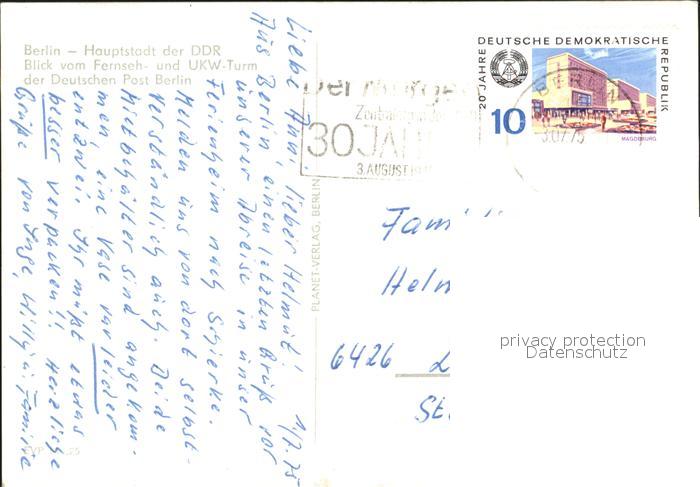 Berlin – Hauptstadt der DDR
Blick vom Fernseh- und UKW-Turm
der Deutschen Post Berlin
Liebe Anni, lieber Helmut! 1/7.75
Aus Berlin einen letzten Gruß vor
unserer Abreise in unser
Ferienheim nach Schierke.
Melden uns von dort selbst-
verständlich auch. Beide
Mietbehälter sind angekom-
men, eine Vase war leider
entzwei. Ihr müßt etwas
besser verpacken!! Herzliche
Grüße von Inge, Willy u. Familie
PLANET-VERLAG, BERLIN
Der Morgen
30 JAH
3. AUGUST
BERLIN
.07.75
20 JAHRE DEUTSCHE DEMOKRATISCHE REPUBLIK
10
MAGDEBURG
Fami
Helm
6426
St.
privacy protection
Datenschutz